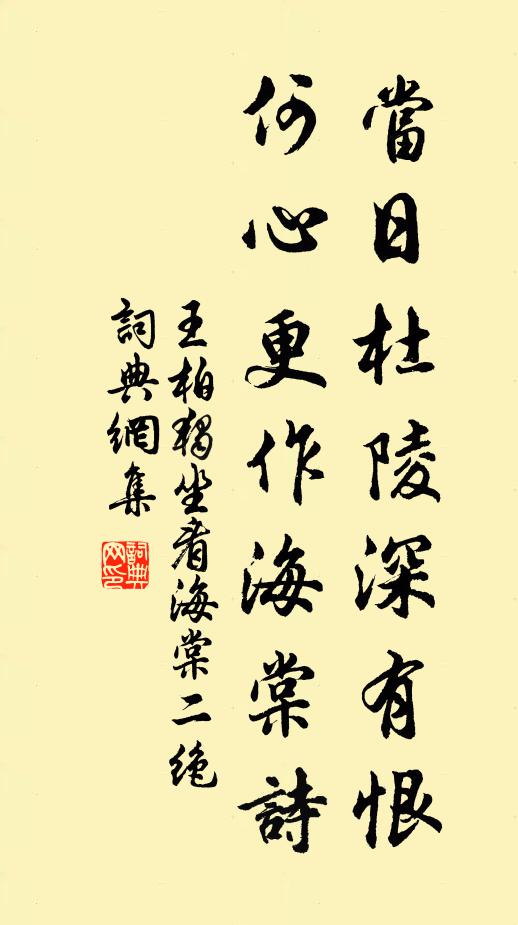 當日杜陵深有恨
何心更作海棠詩
王柏獨坐看海棠二絶
詞典網集
詞典網印